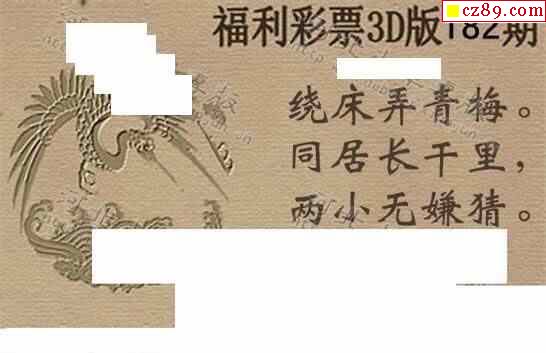 cz89.com
福利彩票3D版182期
绕床弄青梅。
同居长干里，
两小无嫌猜。